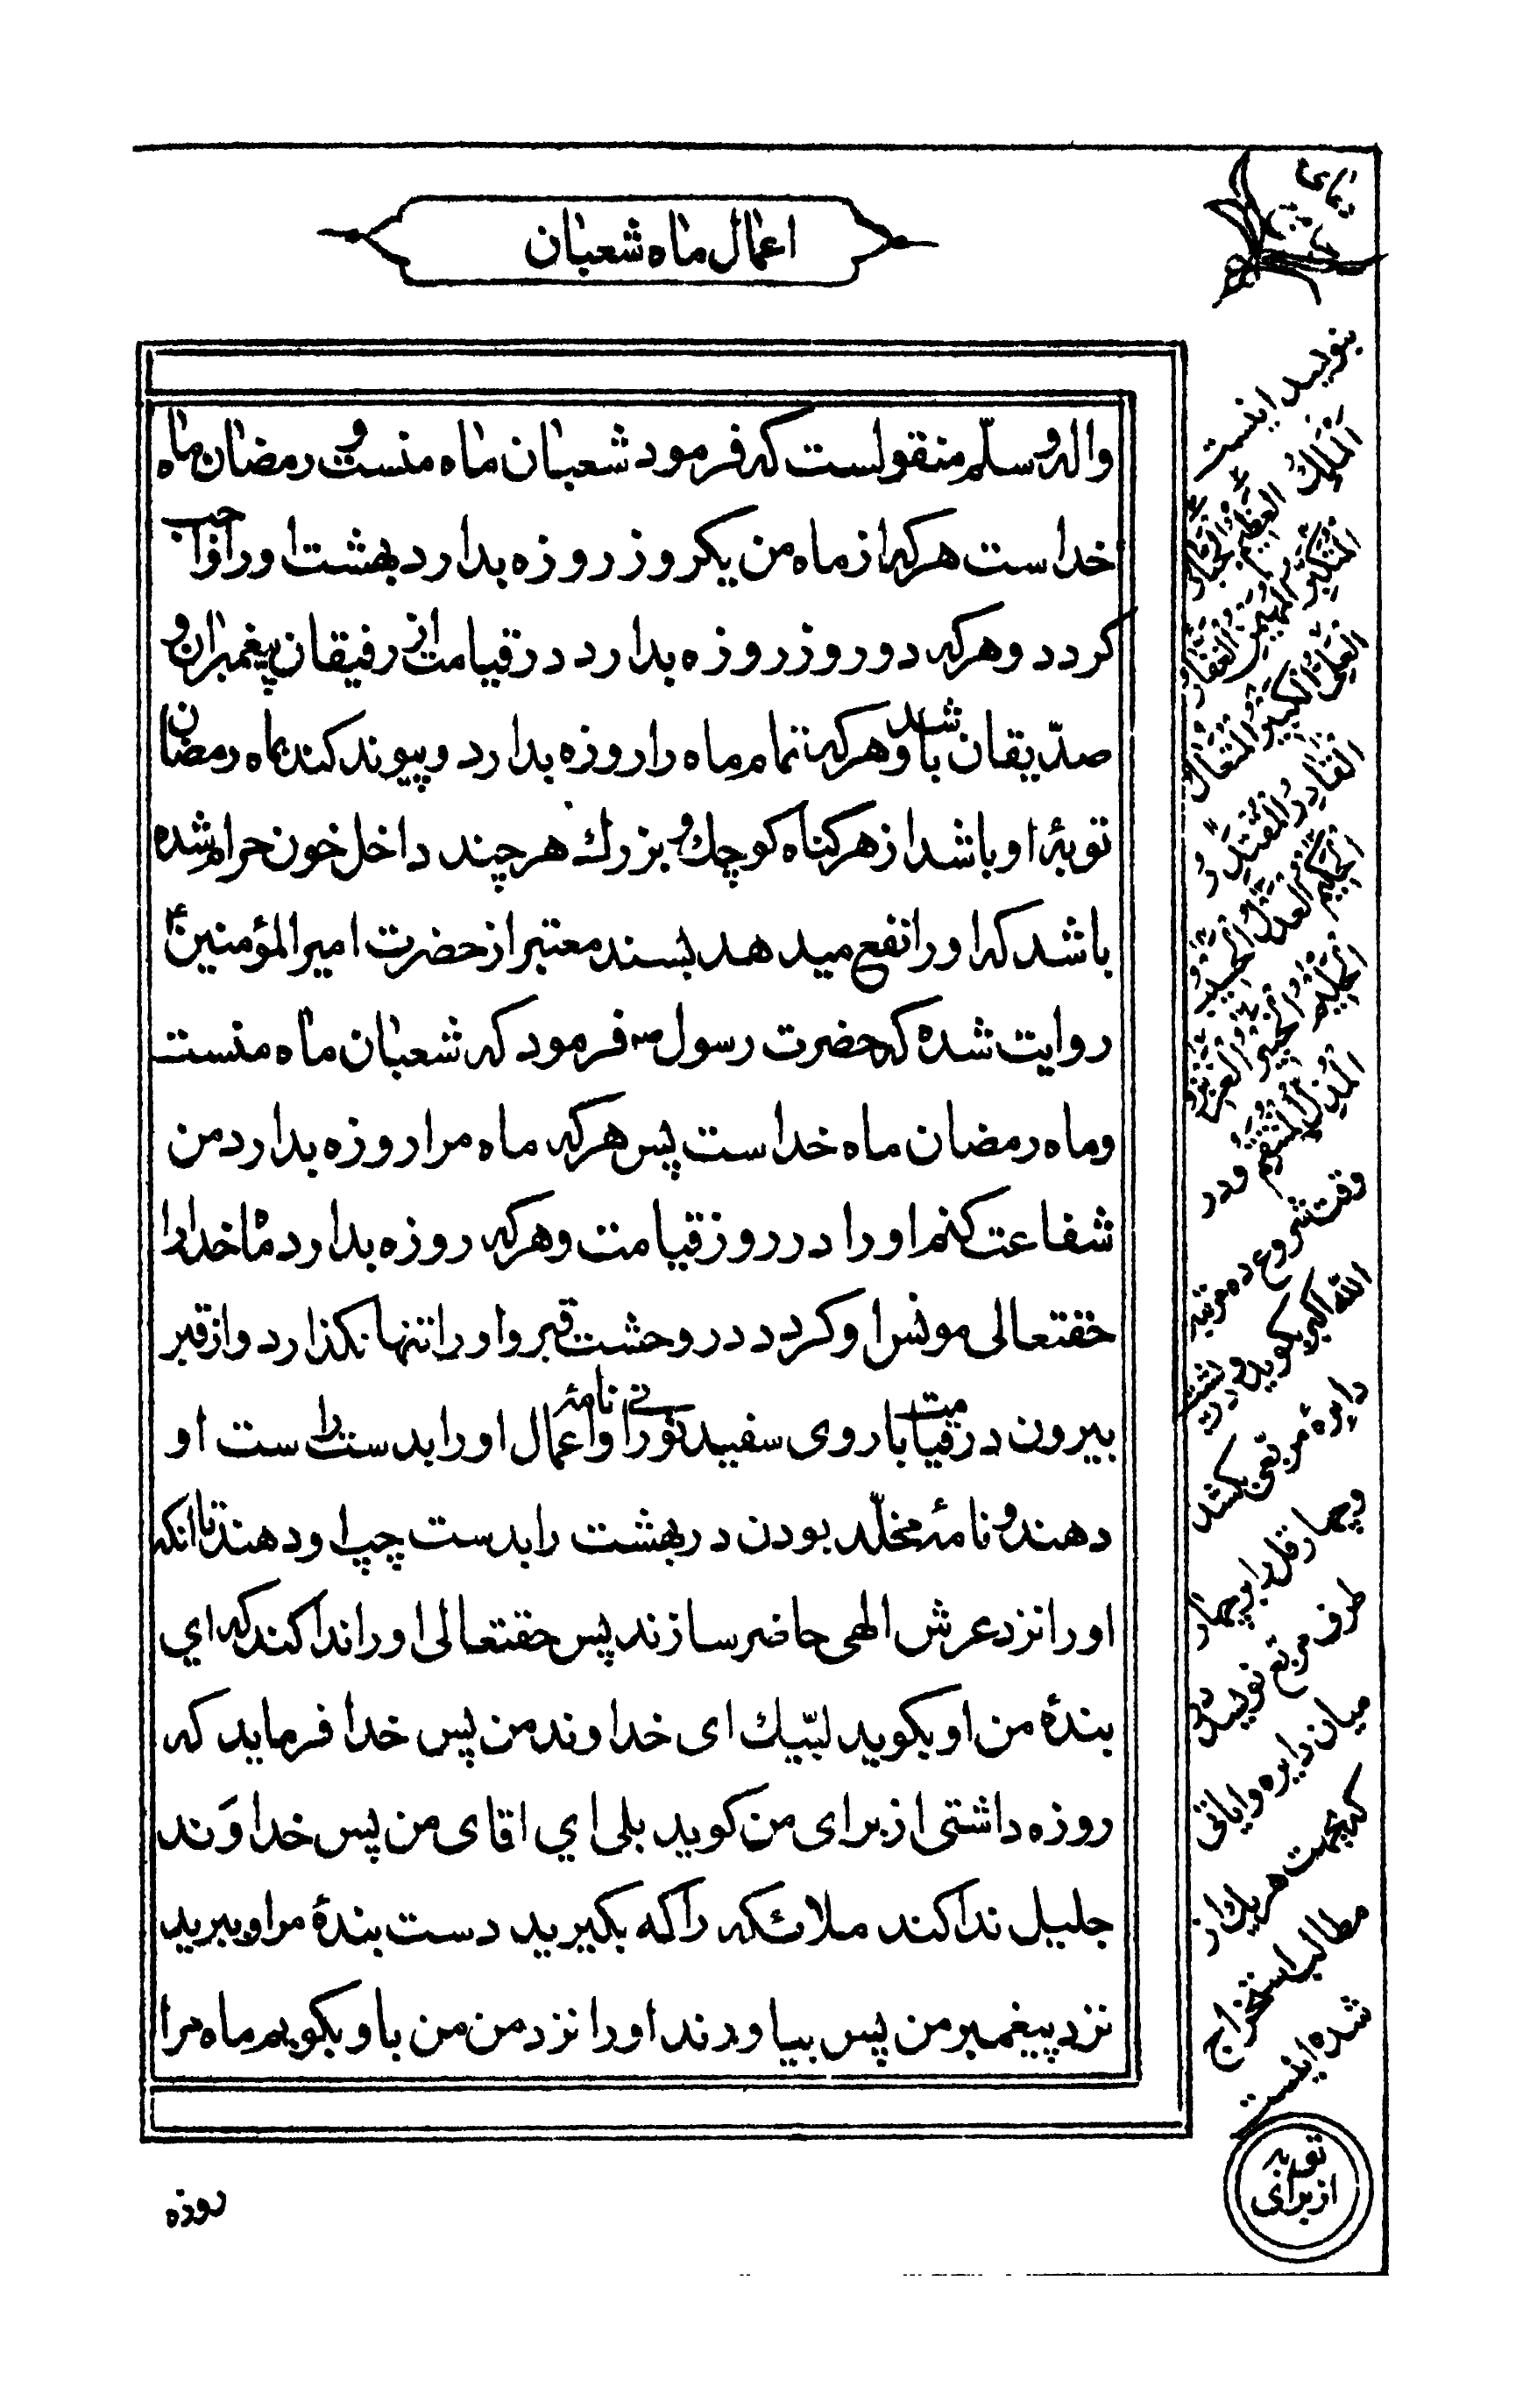 اعمال ماه شعبان
واله وسلّم منقولست که فرمود شعبان ماه منست و رمضان ماه
خداست هرکه از ماه من یکروز روزه بدارد بهشت او را واجب
کردد و هرکه دو روز روزه بدارد در قیامت از رفیقان پیغمبران و
صدّیقان باشد و هرکه تمام ماه را روزه بدارد و پیوند کند بماه رمضان
توبهٔ او باشد از هر کناه کوچك و بزرك هرچند داخل خون حرام شده
باشد که او را نفع میدهد بسند معتبر از حضرت امیرالمؤمنین ؑ
روایت شده که حضرت رسول ص فرمود که شعبان ماه منست
و ماه رمضان ماه خداست پس هرکه ماه مرا روزه بدارد من
شفاعت کنم او را در روز قیامت و هرکه روزه بدارد ماه خدا را
حقتعالی مونس او کردد در وحشت قبر و او را تنها نکذارد و از قبر
بیرون در قیامت با روی سفید نورانی و نامهٔ اعمال او را بدست راست او
دهند و نامهٔ مخلّد بودن در بهشت را بدست چپ او دهند تا انکه
او را نزد عرش الهی حاضر سازند پس حقتعالی او را ندا کند که اي
بندهٔ من او بکوید لبّیك ای خداوند من پس خدا فرماید که
روزه داشتی از برای من کوید بلی اي اقای من پس خداوَند
جلیل ندا کند ملائکه را که بکیرید دست بندهٔ مرا و ببرید
نزد پیغمبر من پس بیاورند او را نزد من من باو بکویم ماه مرا
روزه
بنویسد اینست
اَلْمَلِكُ العَظیمُ الجَبّارُ
المتکبّر المهیمن الغفّار
العَلیُّ الکَبیرُ المُتَعال
القادِرُ المُقتَدِرُ
الحکیم العدل
المُذِلُّ المُنتَقِمُ و در
وقت شروع ده مرتبه
الله اکبر بکوید و
دایرهٔ مربّعی بکشد
و چهار قل را بچهار
طرف مربّع نویسد
میان دایره و ایاتی
که بجهت هریك از
مطالب استخراج
شده اینست
از برای